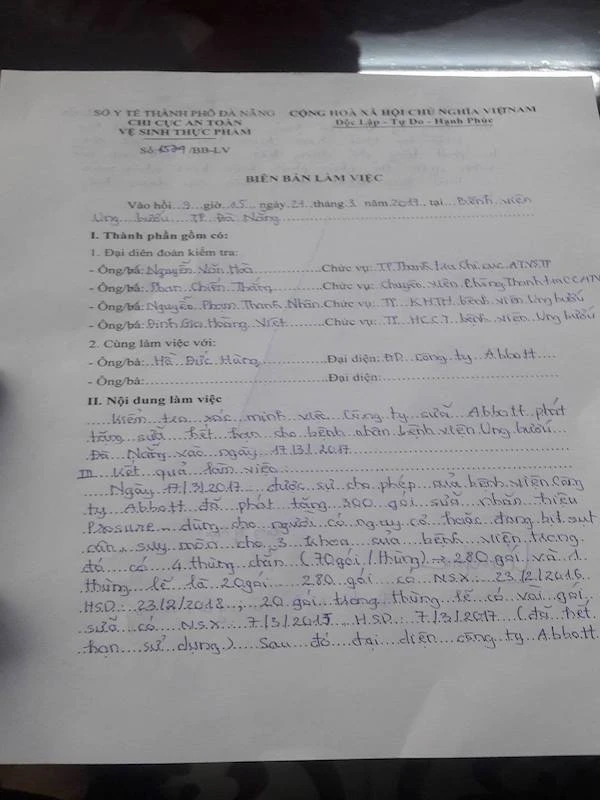 SỞ Y TẾ THÀNH PHỐ ĐÀ NẴNG CỘNG HOÀ XÃ HỘI CHỦ NGHĨA VIỆT NAM
CHI CỤC AN TOÀN Độc Lập - Tự Do - Hạnh Phúc
VỆ SINH THỰC PHẨM
Số: /BB-LV
BIÊN BẢN LÀM VIỆC
Vào hồi 9 giờ 15 ngày 21 tháng 3 năm 2017, tại Bệnh viện
Ung bướu TP Đà Nẵng
I. Thành phần gồm có:
1. Đại diện đoàn kiểm tra:
- Ông/bà: Nguyễn Văn Hoà Chức vụ: TP Thanh tra Chi cục ATVSTP
- Ông/bà: Phan Chiến Thắng Chức vụ: Chuyên viên Phòng Thanh tra CCATV
- Ông/bà: Nguyễn Phạm Thanh Nhân Chức vụ: TP KHTH bệnh viện Ung bướu
- Ông/bà: Đinh Gia Hoàng Việt Chức vụ: TP HCQT bệnh viện Ung bướu
2. Cùng làm việc với:
- Ông/bà: Hà Đức Hùng Đại diện: ĐD công ty Abbott
- Ông/bà: Đại diện:
II. Nội dung làm việc
Kiểm tra xác minh việc Công ty sữa Abbott phát
tặng sữa hết hạn cho bệnh nhân bệnh viện Ung bướu
Đà Nẵng vào ngày 17/3/2017
III. Kết quả làm việc:
Ngày 17/3/2017 được sự cho phép của bệnh viện Công
ty Abbott đã phát tặng 300 gói sữa nhãn hiệu
Prosure dùng cho người có nguy cơ hoặc đang bị sụt
cân, suy mòn cho 3 khoa của bệnh viện trong
đó có 4 thùng chẵn (70gói/1thùng) → 280 gói và 1
thùng lẻ là 20gói. 280 gói có NSX: 23/2/2016
HSD: 23/2/2018, 20 gói trong thùng lẻ có vài gói
sữa có NSX: 7/3/2015, HSD: 7/3/2017 (đã hết
hạn sử dụng.) Sau đó đại diện công ty Abbott